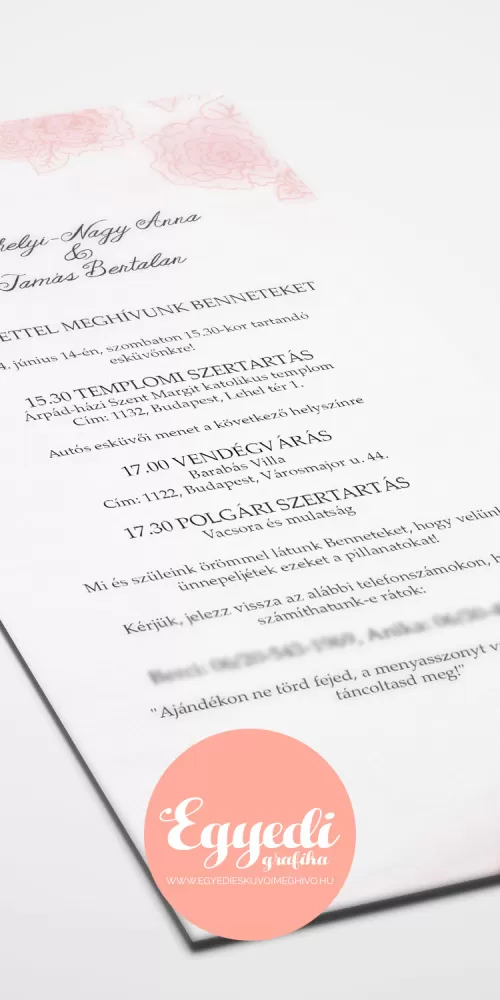 helyi-Nagy Anna
&
Tamás Bertalan
ETTEL MEGHÍVUNK BENNETEKET
4. június 14-én, szombaton 15.30-kor tartandó
esküvőnkre!
15.30 TEMPLOMI SZERTARTÁS
Árpád-házi Szent Margit katolikus templom
Cím: 1132, Budapest, Lehel tér 1.
Autós esküvői menet a következő helyszínre
17.00 VENDÉGVÁRÁS
Barabás Villa
Cím: 1122, Budapest, Városmajor u. 44.
17.30 POLGÁRI SZERTARTÁS
Vacsora és mulatság
Mi és szüleink örömmel látunk Benneteket, hogy velünk
ünnepeljétek ezeket a pillanatokat!
Kérjük, jelezz vissza az alábbi telefonszámokon, h
számíthatunk-e rátok:
"Ajándékon ne törd fejed, a menyasszonyt v
táncoltasd meg!"
Egyedi
grafika
WWW.EGYEDIESKUVOIMEGHIVO.HU